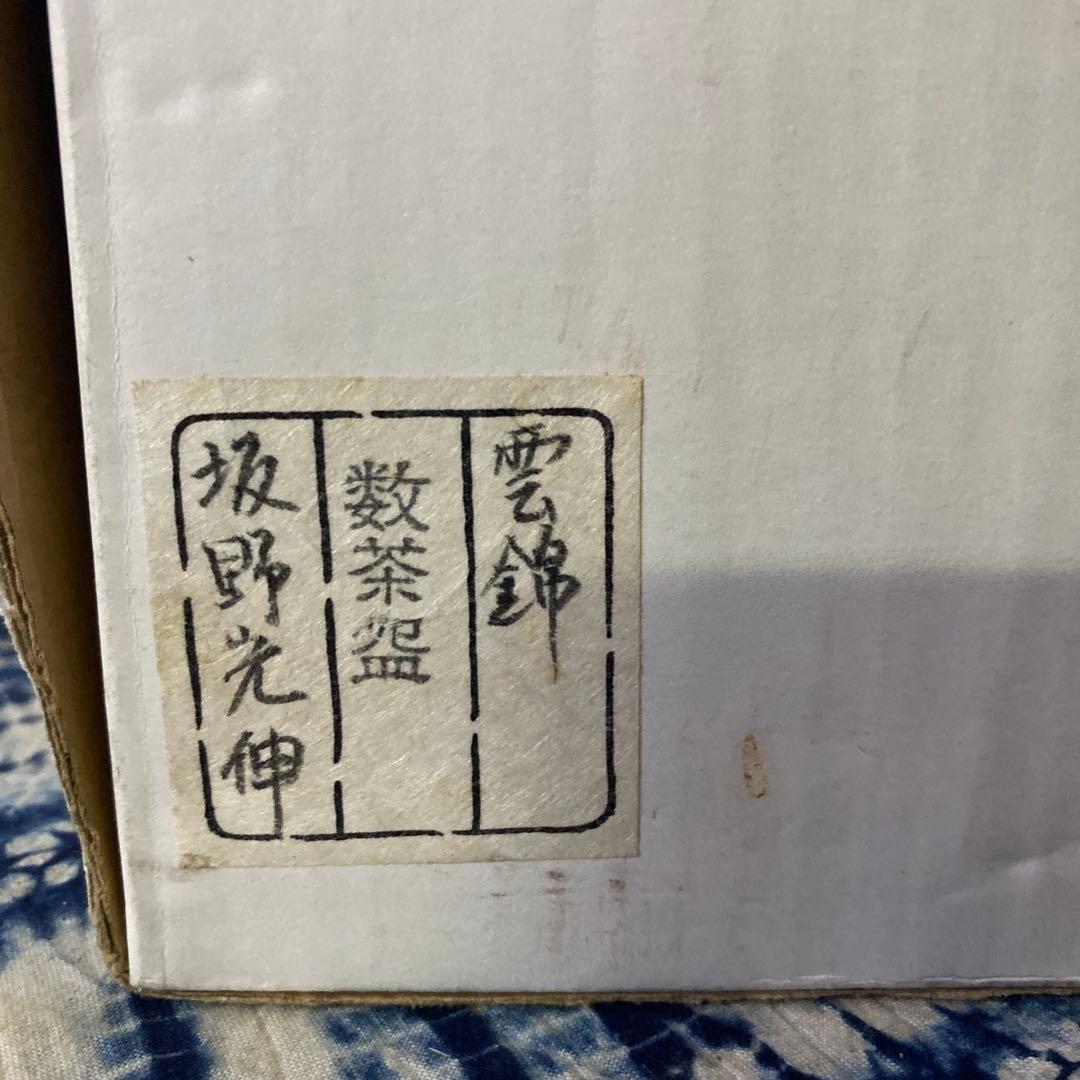 雲錦
数茶盌
坂野光伸